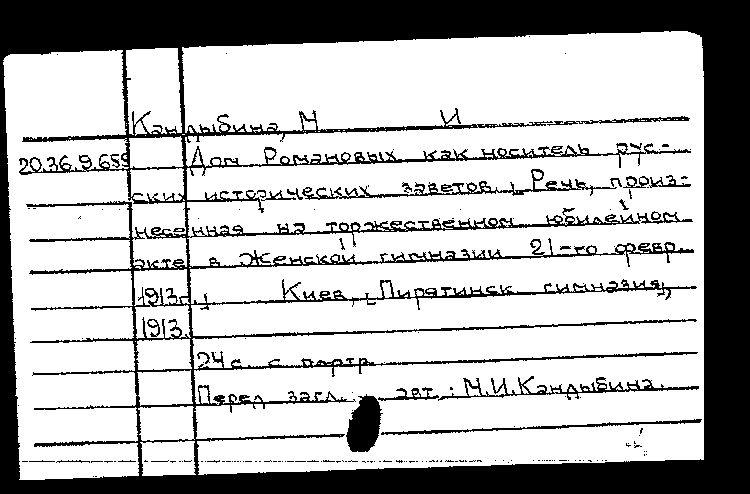 Кандыбина, М И
20.36.9.659 Дом Романовых как носитель рус-
ских исторических заветов. [Речь, произ-
несенная на торжественном юбилейном
акте в Женской гимназии 21-го февр.
1913г.] Киев, [Пирятинск гимназия],
1913.
24 с. с портр.
Перед загл. авт.: М.И.Кандыбина.